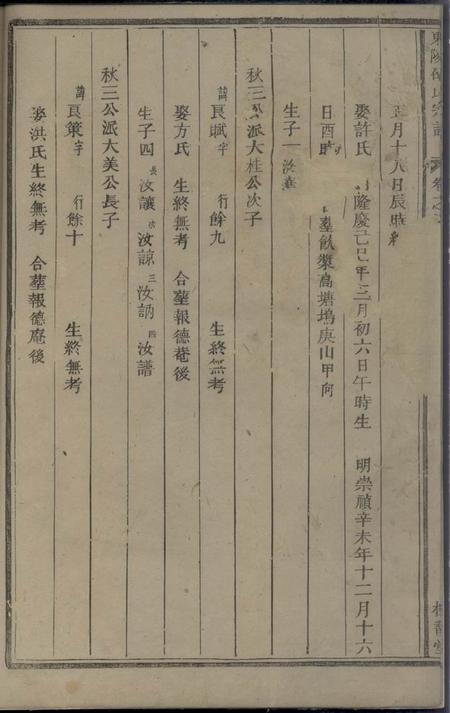 正月十八日辰時
娶許氏 隆慶己巳年三月初六日午時生 明崇禎辛未年十二月十六
日酉時 葬歙蘗高塘塢庚山甲向
生子一
秋三公派大桂公次子
諱良賦字 行餘九 生終無考
娶方氏 生終無考 合葬報德菴後
生子四 長汝讓 次汝諒 三汝訥 四汝譜
秋三公派大美公長子
諱良策字 行餘十 生終無考
娶洪氏生終無考 合葬報德庵後